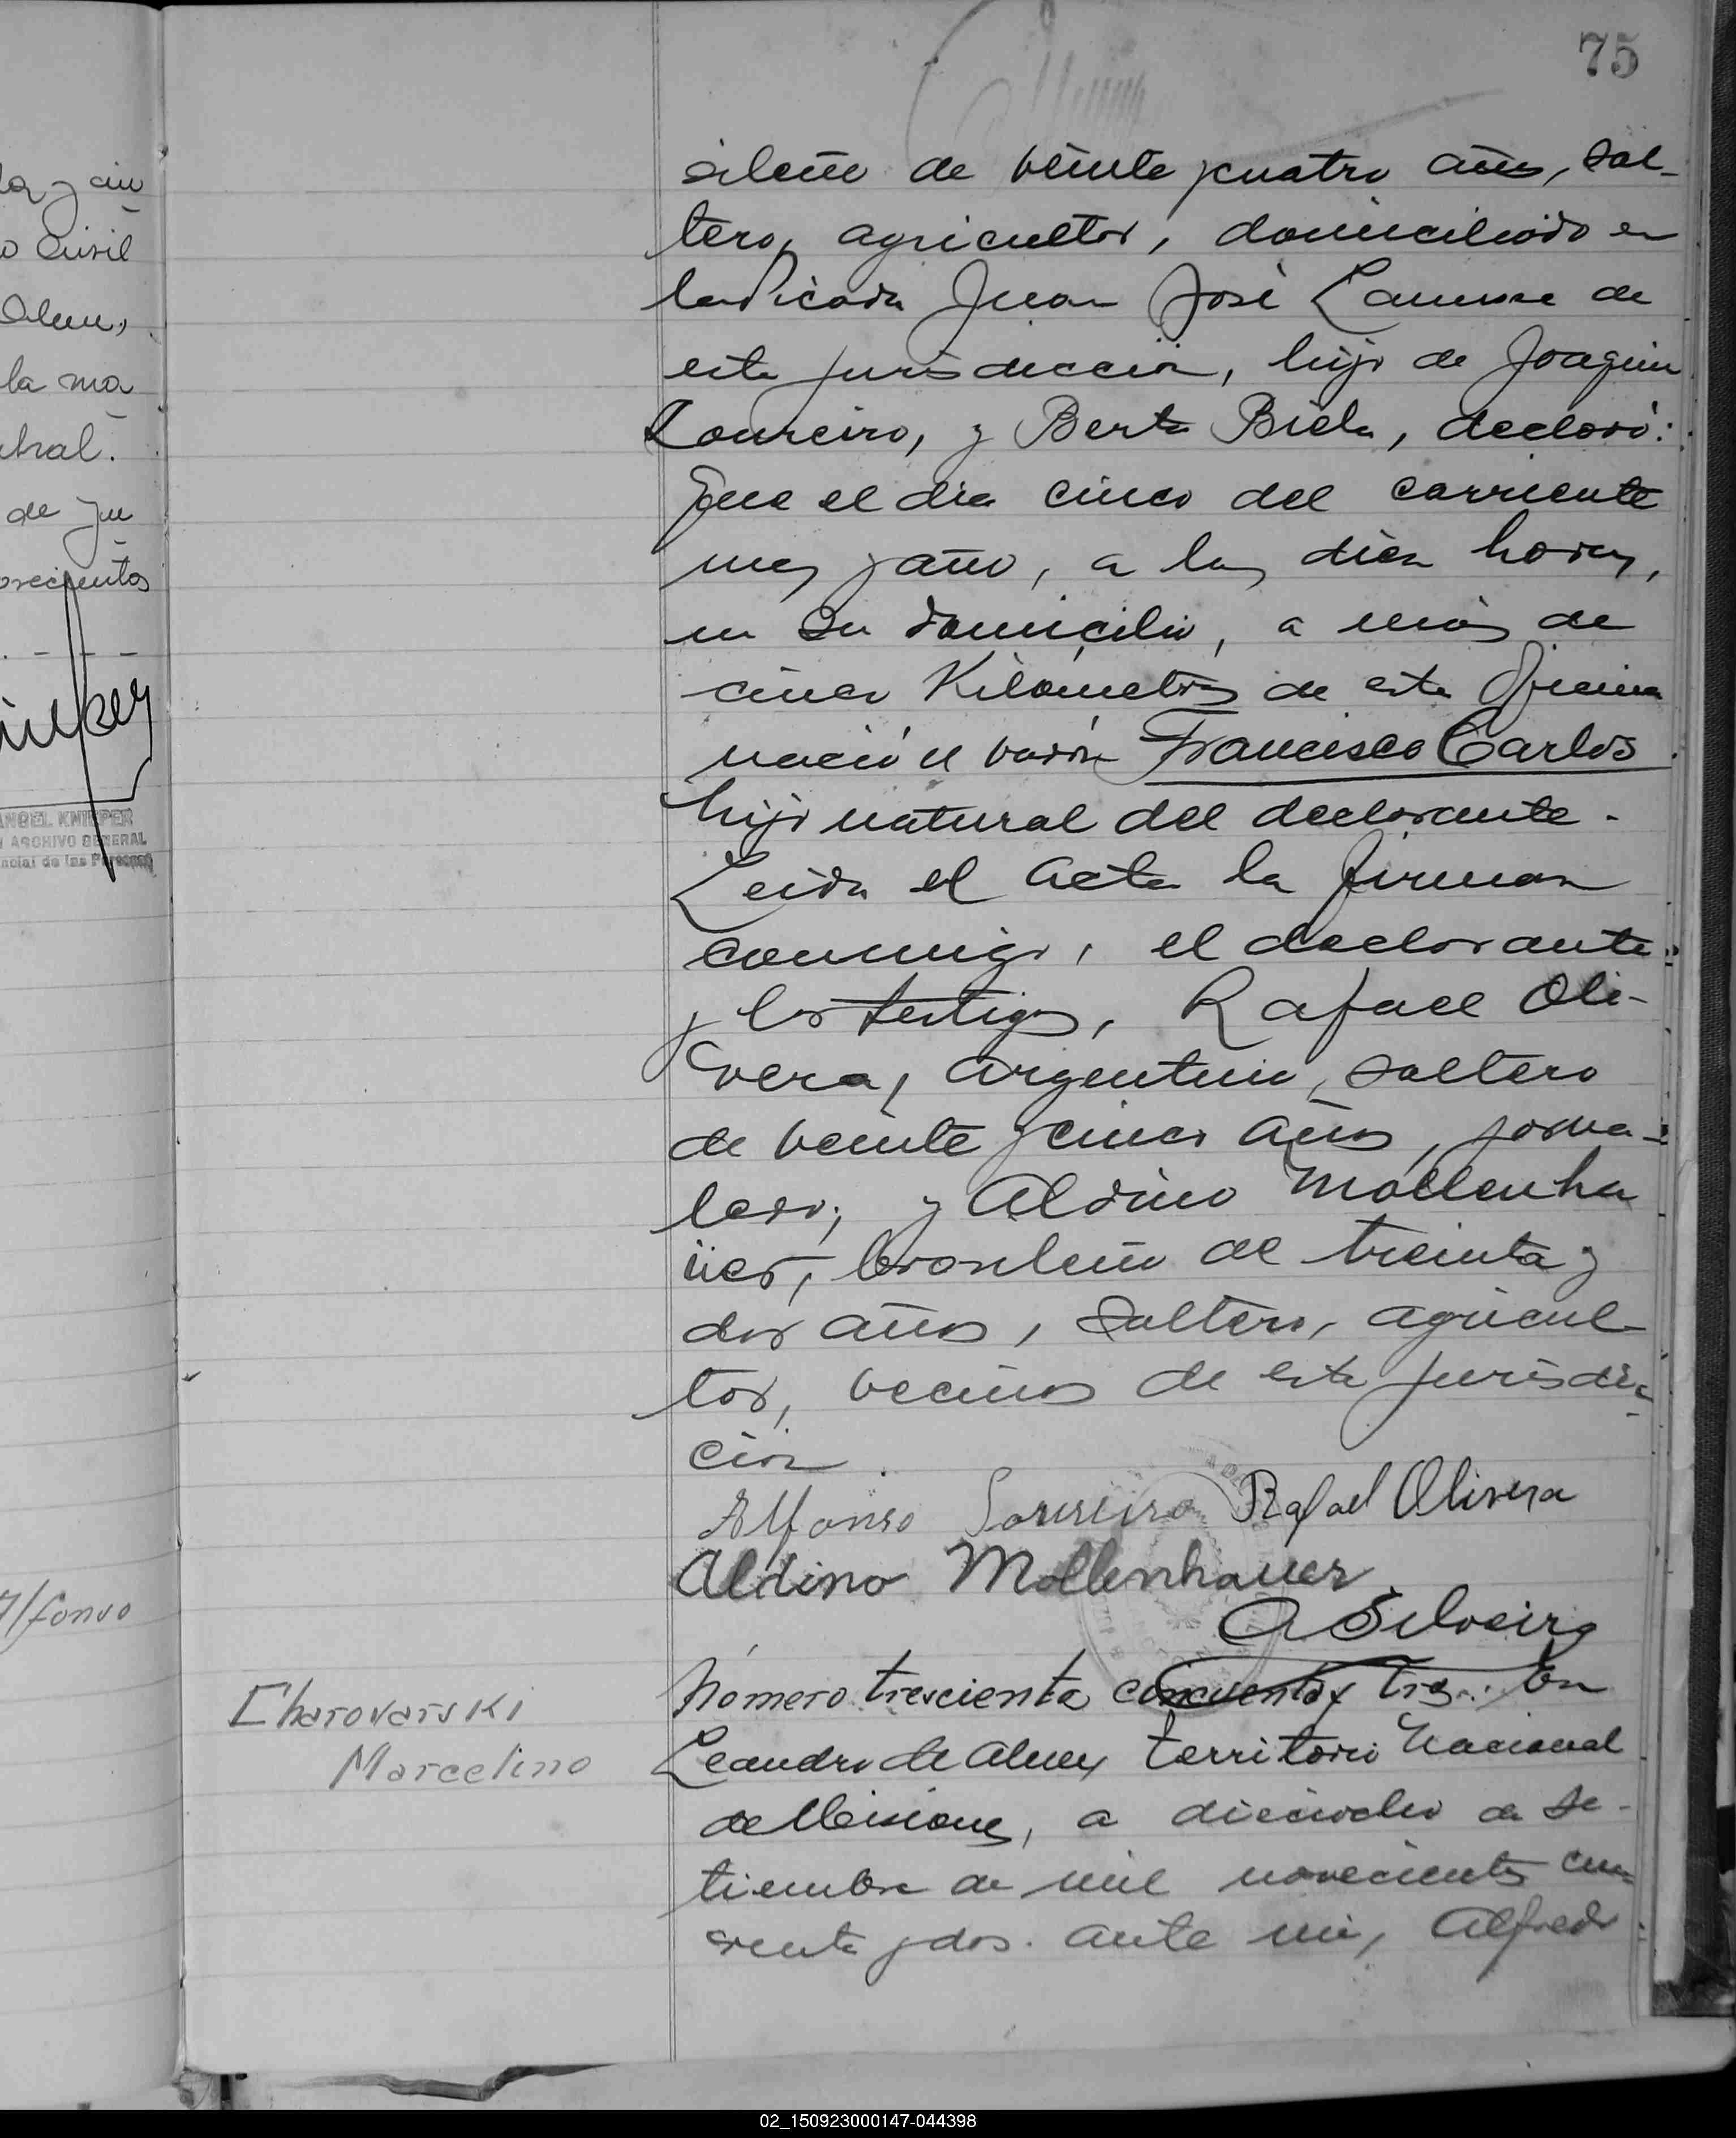 75
la y cin
o Civil
Alem,
la ma
tral.
de Ju
ovecientos
ANGEL KNIEPER
ARCHIVO GENERAL
ncial de las Personas
Alfonso
sileño de veinte y cuatro años, sol-
tero, agricultor, domiciliado en
la Picada Juan José Lanusse de
esta jurisdicción, hijo de Joaquin
Loureiro, y Berta Biela, declaró:
Que el dia cinco del corriente
mes y año, a las diez horas,
en su domicilio, a más de
cinco Kilómetros de esta Oficina
nació el varón Francisco Carlos
hijo natural del declarante.
Leida el acta la firman
conmigo, el declarante
y los testigos, Rafael Oli-
vera, argentino, soltero
de veinte y cinco años, jorna-
lero; y Aldino Mollenha
üer, brasileño de treinta y
dos años, soltero, agricul-
tor, vecinos de esta jurisdic-
ción.
Alfonso Loureiro Rafael Olivera
Aldino Mollenhauer
A Silveira
Charovarski
Marcelino
Nómero trescienta cincuenta y tres. En
Leandro de Alem, territorio Nacional
de Misiones, a dieciocho de Se-
tiembre de mil novecientos cua-
renta y dos. ante mi, Alfredo
02_150923000147-044398